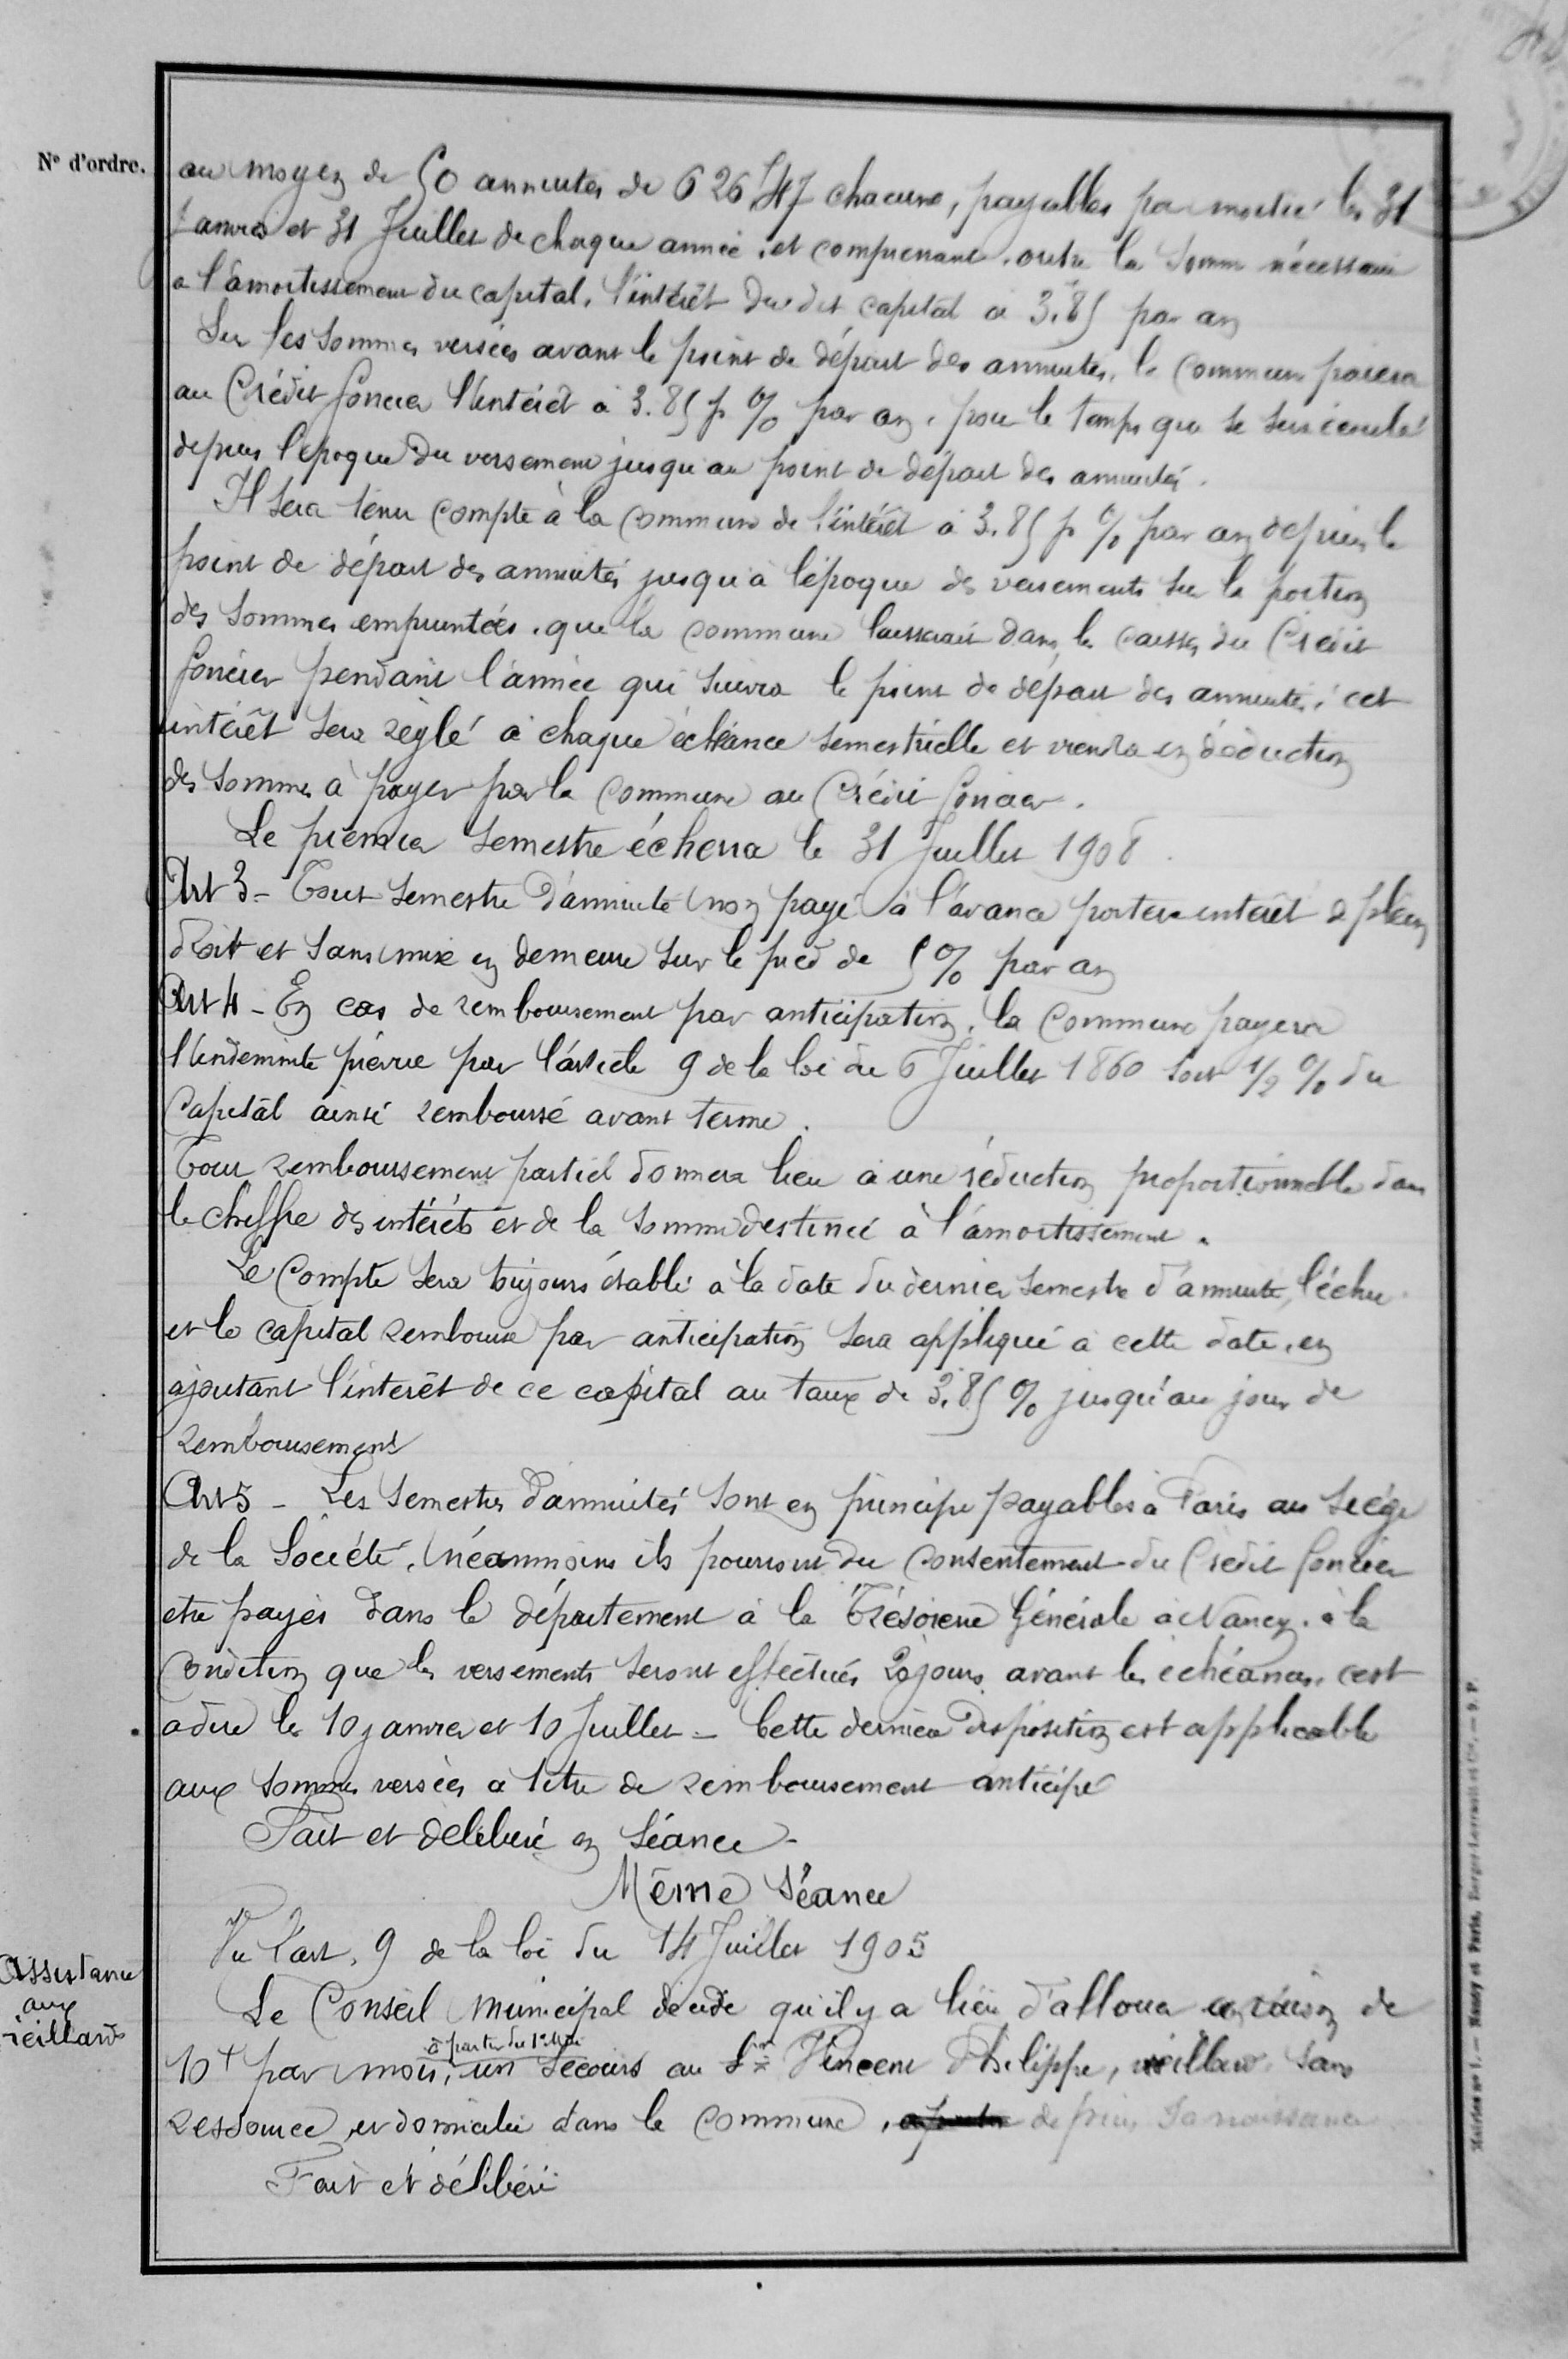 N° d'ordre.
au moyen de 50 annuités de 626f47 chacune, payables par moitié les 31
Janvier et 31 Juillet de chaque année, et comprenant, outre la somme nécessaire
a l'amortissement du capital, l'intérêt du dit capital à 3.85 par an
Sur les sommes versées avant le point de départ des annuités, la commune paiera
au Crédit foncier l'intérêt à 3.85 p % par an, pour le temps qui se sera écoulé
depuis l'epoque du versement jusqu'au point de départ des annuités.
Il sera tenu compte à la commune de l'intérêt à 3.85 p % par an depuis le
point de départ des annuités jusqu'à l'époque des versements sur la portion
des sommes empruntées, que la commune laisserait dans les caisses du Crédit
foncier pendant l'année qui suivra le point de départ des annuités; cet
intérêt sera réglé à chaque échéance semestrielle et viendra en déduction
des sommes à payer par la commune au Crédit foncier.
Le premier semestre écherra le 31 Juillet 1908.
Art 3 - Tout semestre d'annuité non payé à l'avance portera intérêt de plein
droit et sans mise en demeure sur le pied de 5 % par an
Art 4 - En cas de remboursement par anticipation, la commune payera
l'indemnité prévue par l'article 9 de la loi du 6 Juillet 1860 soit 1/2 % du
Capital ainsi remboursé avant terme.
Tout remboursement partiel donnera lieu à une réduction proportionnelle dans
le chiffre des intérêts et de la somme destinée à l'amortissement.
Le Compte sera toujours établi à la date du dernier semestre d'annuité, échu
et le capital remboursé par anticipation sera appliqué à cette date, en
ajoutant l'intérêt de ce capital au taux de 3.85 % jusqu'au jour de
remboursement
Art 5 - Les semestres d'annuités sont en principe payables à Paris au siège
de la Société, néanmoins ils pourront du consentement du Crédit foncier
etre payés dans le département à la Trésorerie Générale à Nancy, à la
condition que les versements seront effectués 20 jours avant les échéances, c'est
adire les 10 janvier et 10 Juillet - Cette dernière disposition est applicable
aux sommes versées a titre de remboursement anticipé
Fait et délibéré en séance -
Même Séance
Vu l'art. 9 de la loi du 14 Juillet 1905
Assistance
aux
vieillards
Le Conseil municipal décide qu'il y a lieu d'allouer en raison de
à partir du 1er Mai
10f par mois, un secours au Sr Vincent Philippe, vieillard sans
ressource, et domicilié dans la commune, depuis sa naissance
Fait et délibéré
Mairies n° 1. — Nancy et Paris, Berger-Levrault et Cie. — S. P.